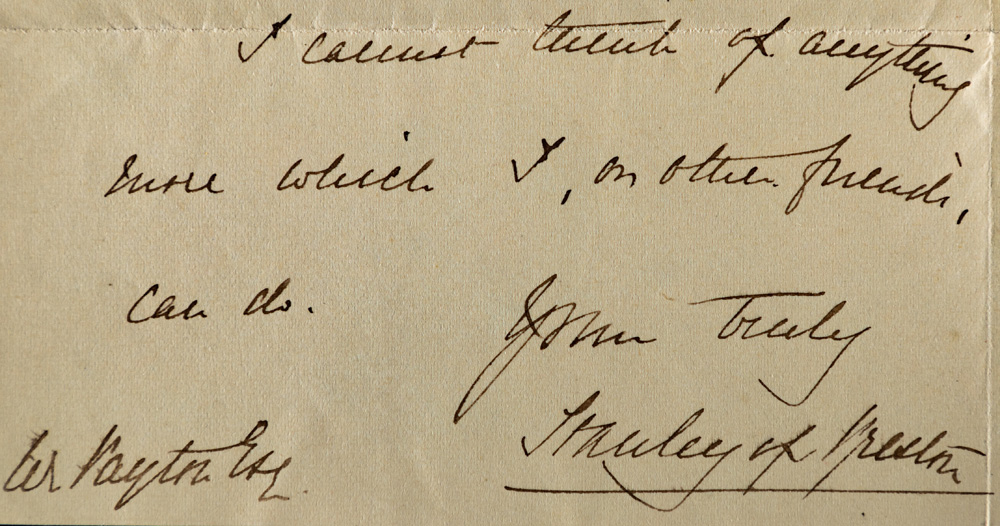 I cannot think of anything
more which I, or other friends,
can do.
Yours Truly
Stanley of Preston
W Payton Esq.